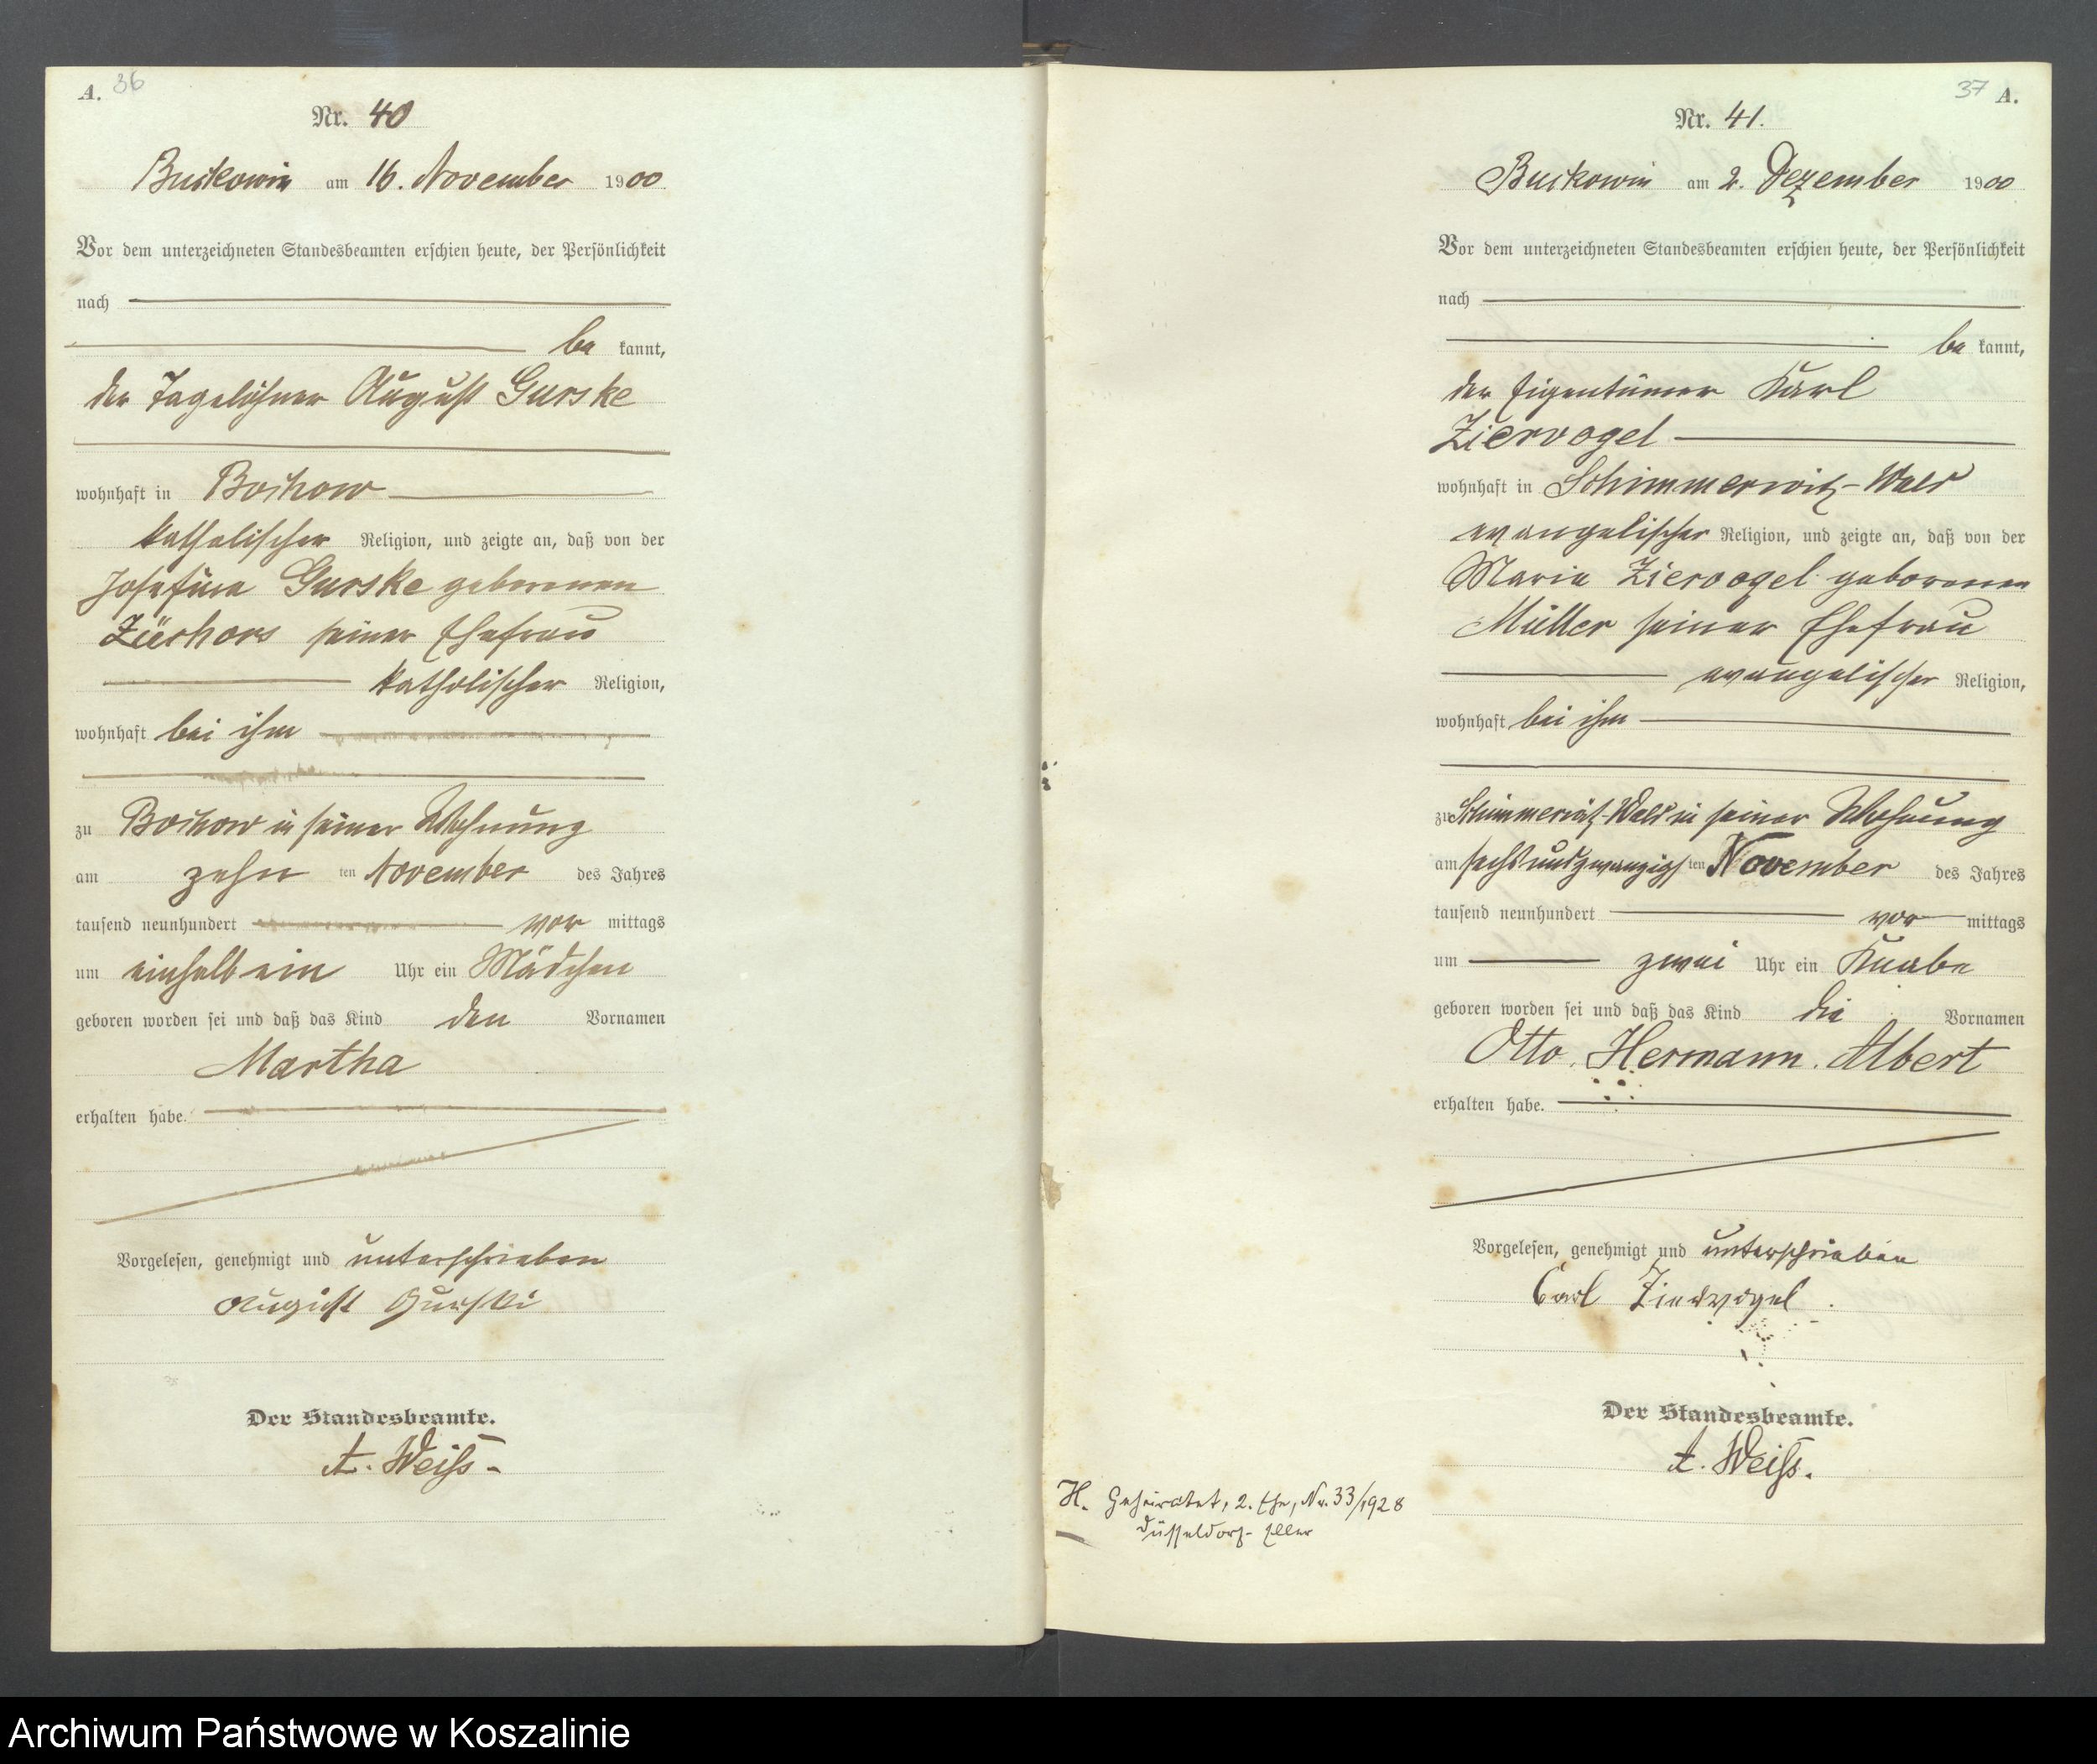 A. 36
Nr. 40
Buckowin am 16. November 1900
Vor dem unterzeichneten Standesbeamten erschien heute, der Persönlichkeit
nach
be kannt,
der Tagelöhner August Gurske
wohnhaft in Bochow
katholischer Religion, und zeigte an, daß von der
Josefina Gurske geborenen
seiner Ehefrau
katholischer Religion,
wohnhaft bei ihm
zu Bochow in seiner Wohnung
am zehn ten November des Jahres
tausend neunhundert vor mittags
um einhalb ein Uhr ein Mädchen
geboren worden sei und daß das Kind den Vornamen
Martha
erhalten habe.
Vorgelesen, genehmigt und unterschrieben
August Gurski
Der Standesbeamte.
A. Weiß.
37 A.
Nr. 41.
Buckowin am 2. Dezember 1900
Vor dem unterzeichneten Standesbeamten erschien heute, der Persönlichkeit
nach
be kannt,
der Eigentümer Karl
Ziervogel
wohnhaft in Schimmerwitz-Wald
evangelischer Religion, und zeigte an, daß von der
Marie Ziervogel geborenen
Müller seiner Ehefrau
evangelischer Religion,
wohnhaft bei ihm
zu Schimmerwitz-Wald in seiner Wohnung
am sechsundzwanzigs ten November des Jahres
tausend neunhundert vor mittags
um zwei Uhr ein Knabe
geboren worden sei und daß das Kind die Vornamen
Otto, Hermann, Albert
erhalten habe.
Vorgelesen, genehmigt und unterschrieben
Carl Ziervogel.
Der Standesbeamte.
A. Weiß.
H. Geheiratet, 2. Ehe, Nr. 33/1928
Düsseldorf-Eller
Archiwum Państwowe w Koszalinie